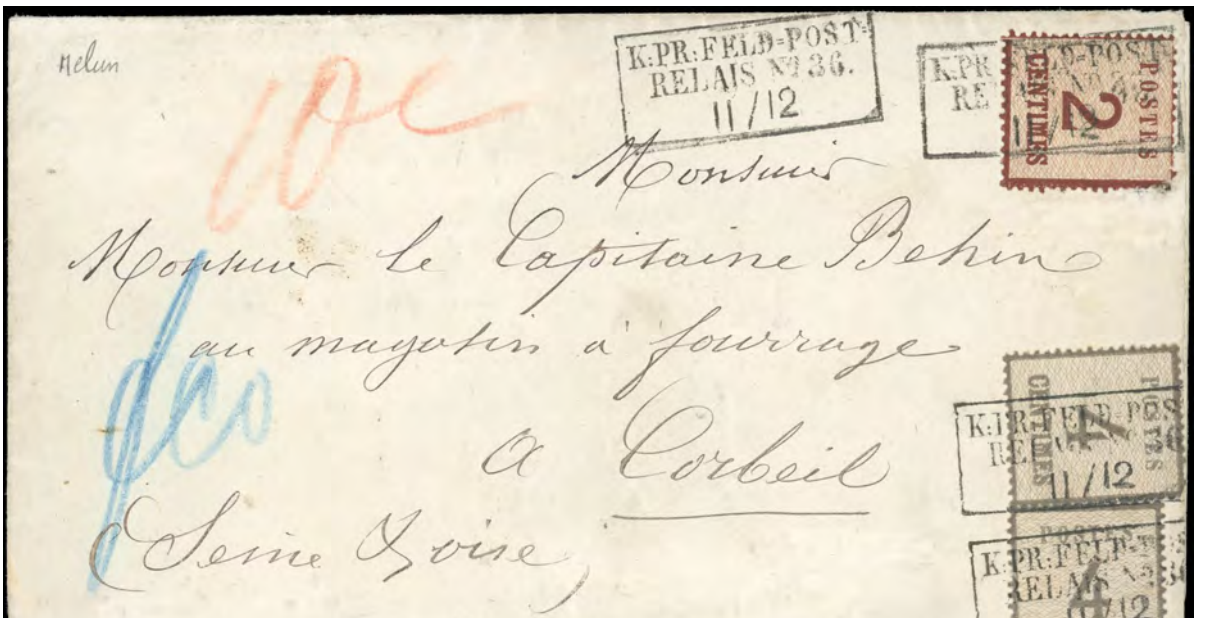 Melun
10 c
K:PR:FELD=POST=
RELAIS Nº 36.
11/12
K:PR:FELD=POST=
RE
11/12
POSTES
2
CENTIMES
Monsieur
Monsieur le Capitaine Behin
au magasin à fourrage
a Corbeil
(Seine & oise)
POSTES
4
CENTIMES
K:PR:FELD=POS
RELAIS
11/12
POSTES
4
K:PR:FELD=
RELAIS Nº 36
11/12